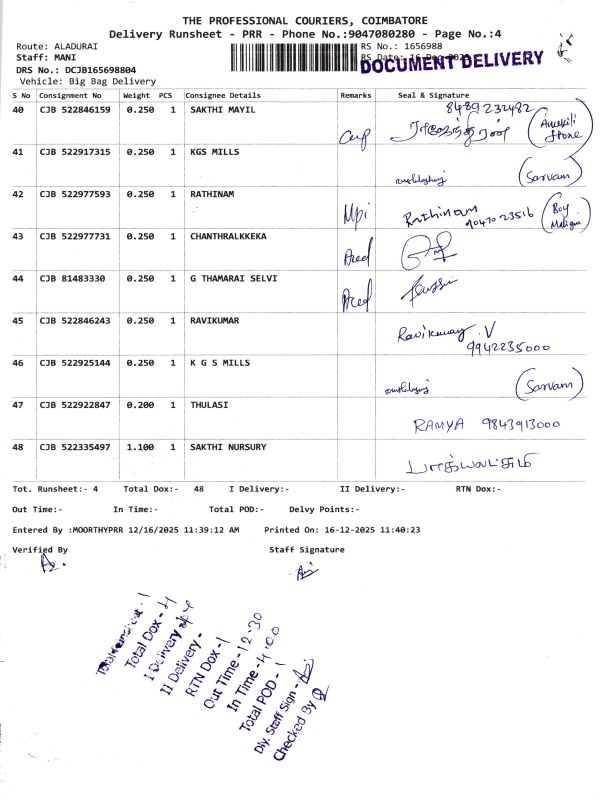 THE PROFESSIONAL COURIERS, COIMBATORE
Delivery Runsheet - PRR - Phone No.:9047080280 - Page No.:4
Route: ALADURAI
RS No.: 1656988
Staff: MANI
RS Date: 16-Dec-2025
DOCUMENT DELIVERY
DRS No.: DCJB165698804
Vehicle: Big Bag Delivery
S No Consignment No Weight PCS Consignee Details Remarks Seal & Signature
40 CJB 522846159 0.250 1 SAKTHI MAYIL 8489232482
41 CJB 522917315 0.250 1 KGS MILLS (Sarvam)
42 CJB 522977593 0.250 1 RATHINAM Rathinam 9047023516
43 CJB 522977731 0.250 1 CHANTHRALKKEKA
44 CJB 81483330 0.250 1 G THAMARAI SELVI
45 CJB 522846243 0.250 1 RAVIKUMAR Ravikumar .V
9942235000
46 CJB 522925144 0.250 1 K G S MILLS (Sarvam)
47 CJB 522922847 0.200 1 THULASI RAMYA 9843913000
48 CJB 522335497 1.100 1 SAKTHI NURSURY
Tot. Runsheet:- 4 Total Dox:- 48 I Delivery:- II Delivery:- RTN Dox:-
Out Time:- In Time:- Total POD:- Delvy Points:-
Entered By :MOORTHYPRR 12/16/2025 11:39:12 AM Printed On: 16-12-2025 11:40:23
Verified By Staff Signature
Total Dox - 4
I Delivery
II Delivery -
RTN Dox - 1
Out Time - 12.30
In Time - 4.00
Total POD - 1
Diy. Staff Sign -
Checked By